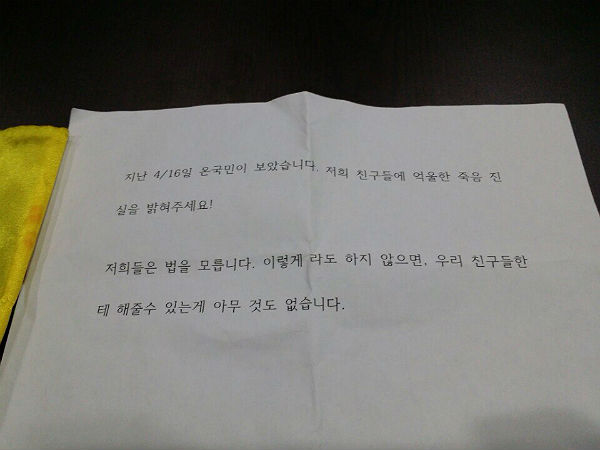 지난 4/16일 온국민이 보았습니다. 저희 친구들에 억울한 죽음 진
실을 밝혀주세요!
저희들은 법을 모릅니다. 이렇게 라도 하지 않으면, 우리 친구들한
테 해줄수 있는게 아무 것도 없습니다.